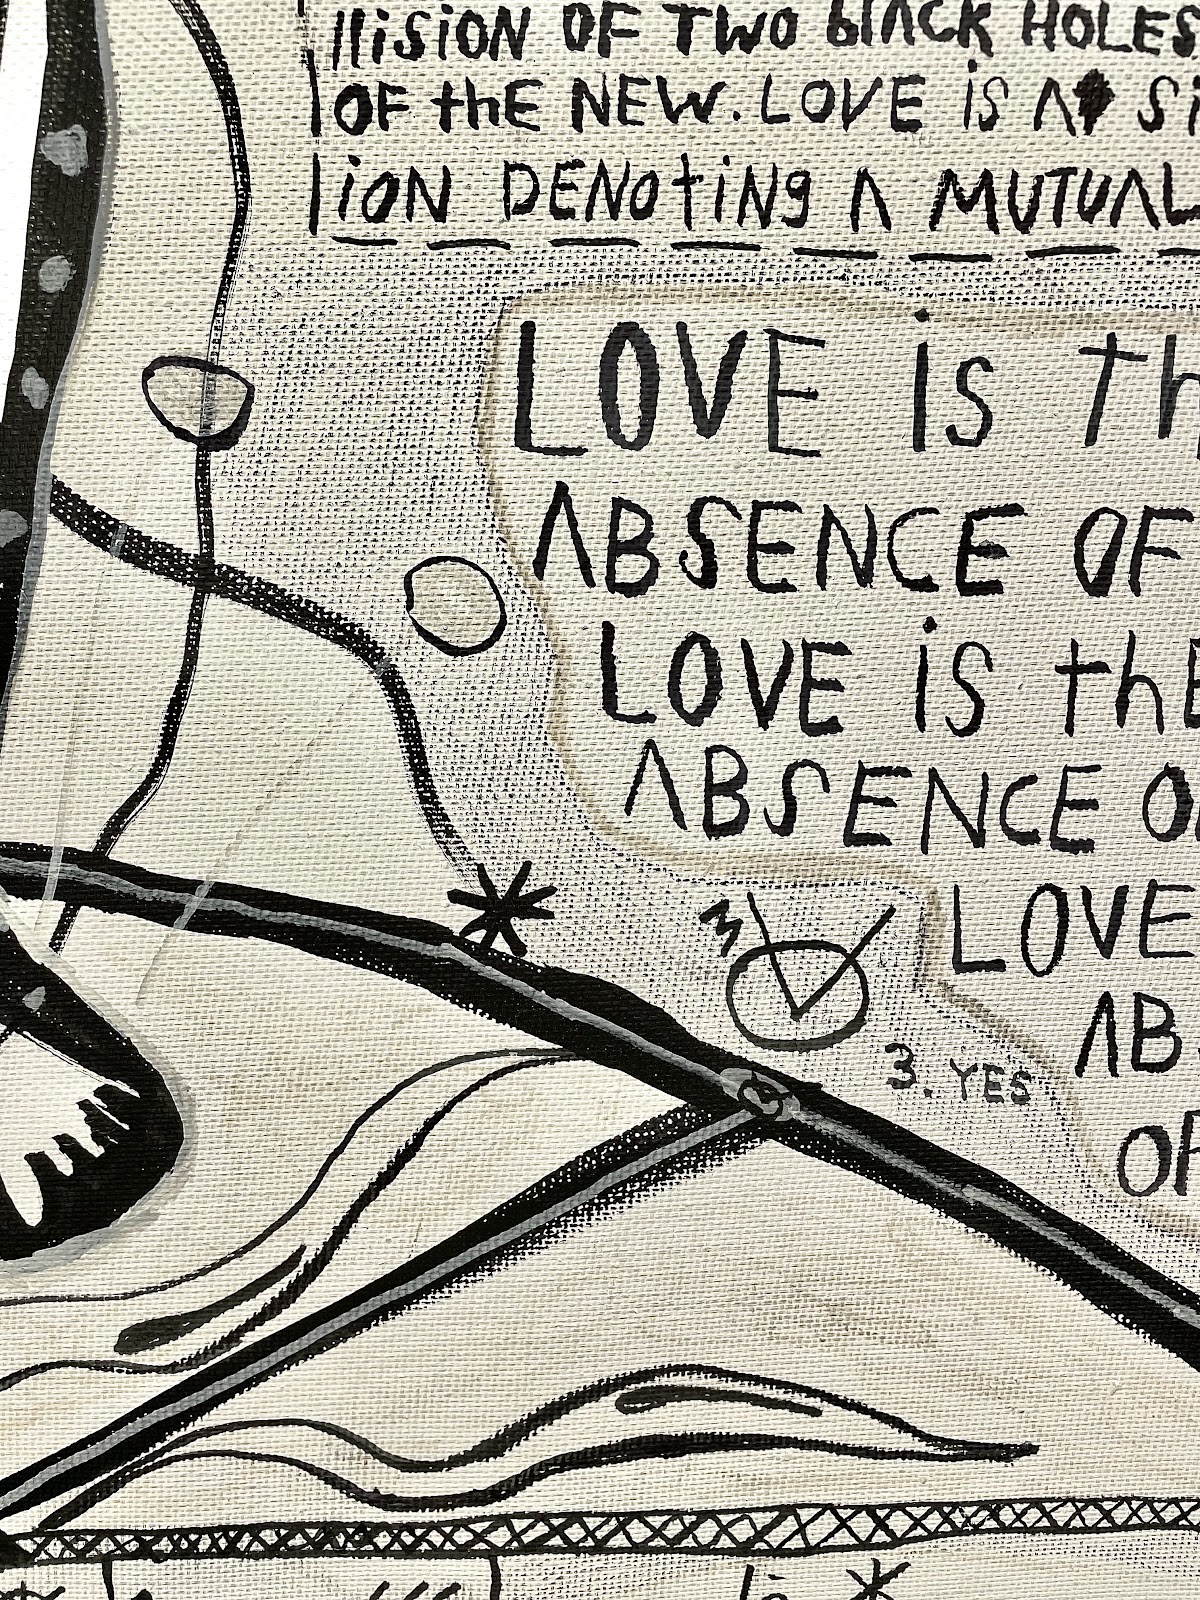 llisiON OF TWO blACK HOLES
OF thE NEW. LOVE iS A
iON DENOtiNg A MUTUAL
LOVE iS Th
ABSENCE OF
LOVE iS thE
ABSENCE O
LOVE
AB
OF
3. YES